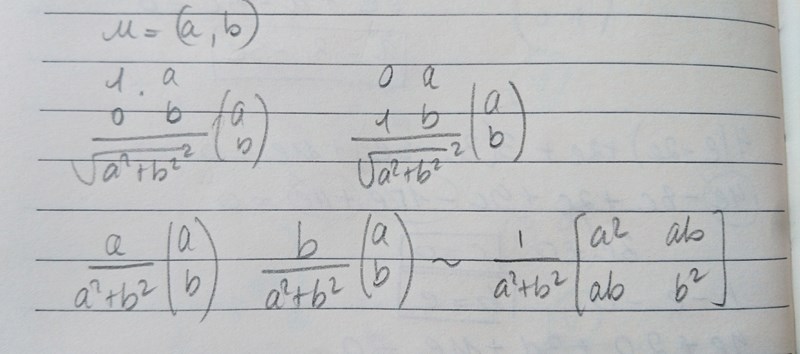 u = (a, b)
1 . a 0 a
0 b (a b) 1 b (a b)
√a²+b² ² √a²+b² ²
a/(a²+b²) (a b) b/(a²+b²) (a b) ~ 1/(a²+b²) [a² ab ab b²]